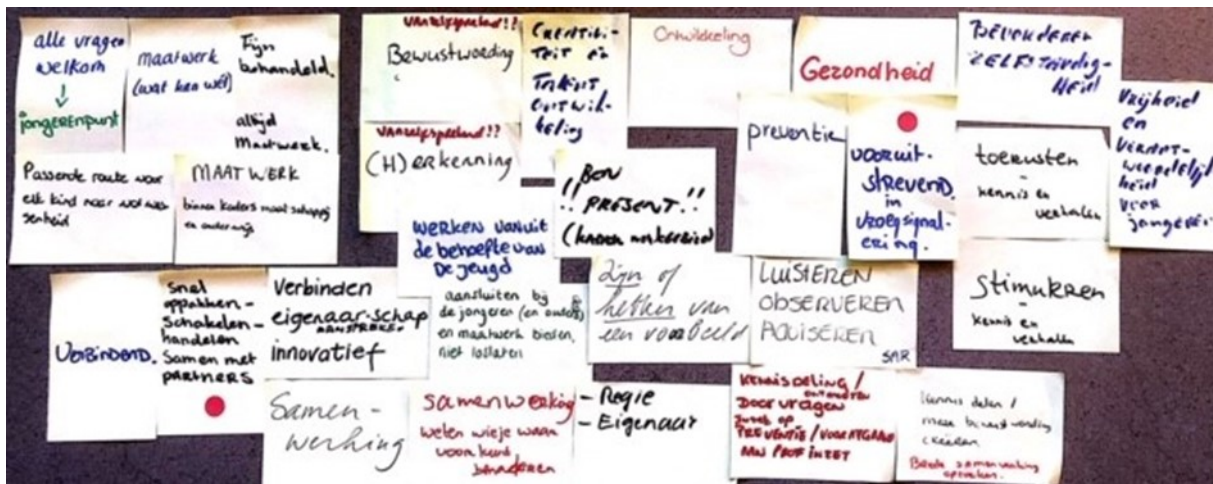 alle vragen
welkom
jongerenpunt
maatwerk
(wat kan wél)
Fijn
behandeld.
altijd
Maatwerk.
Passende route voor
elk kind naar volwas
senheid
MAATWERK
binnen kaders maatschappij
en onderwijs
VANZELFSPREKEND!!
Bewustwording
VANZELFSPREKEND!!
(H)erkenning
CREATIVI-
TEIT EN
TALENT
ONTWIK-
KELING
Ontwikkeling
Gezondheid
BEVORDEREN
ZELFSTANDIG-
HEID
VRIJHEID
EN
VERANT-
WOORDELIJK
HEID
VOOR
jongeren
preventie
VOORUIT-
STREVEND
in
VROEGSIGNAL-
ERING.
toerusten
-
kennis en
verhalen
stimuleren
-
kennis en
verhalen
!! BEN
PRESENT!!
WERKEN VANUIT
de behoefte van
De jeugd
aansluiten bij
de jongeren (en ouders)
en maatwerk bieden,
niet loslaten
Zijn of
hebben van
een voorbeeld
LUISTEREN
OBSERVEREN
ADVISEREN
VERBINDEND.
Snel
oppakken-
Schakelen-
handelen
Samen met
PARTNERS
Verbinden
eigenaar-schap
innovatief
Samen-
werking
SAMENWERKING
weten wie je waar
voor kunt
benaderen
- Regie
- Eigenaar
KENNISDELING /
DOORVRAGEN
PREVENTIE /
PROF INZET
kennis delen /
meer bewustwording
creëren.
Brede samenwerking